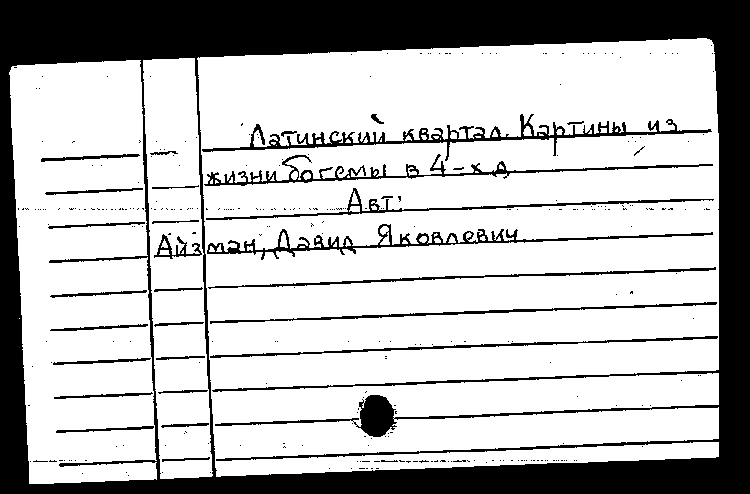 Латинский квартал. Картины из
жизни богемы в 4-х д
Авт:
Айзман, Давид Яковлевич